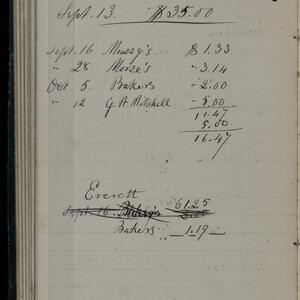 Sept. 13. $35.00
Sept. 16 Muzzy's $1.33
" 28 Morse's " 3.14
Oct 5. Bakers " 2.00
" 12 G. H. Mitchell " 5.00
11.47
5.00
16.47
Everett
61.25
Sept. 16. 2.00
Bakers 1.19